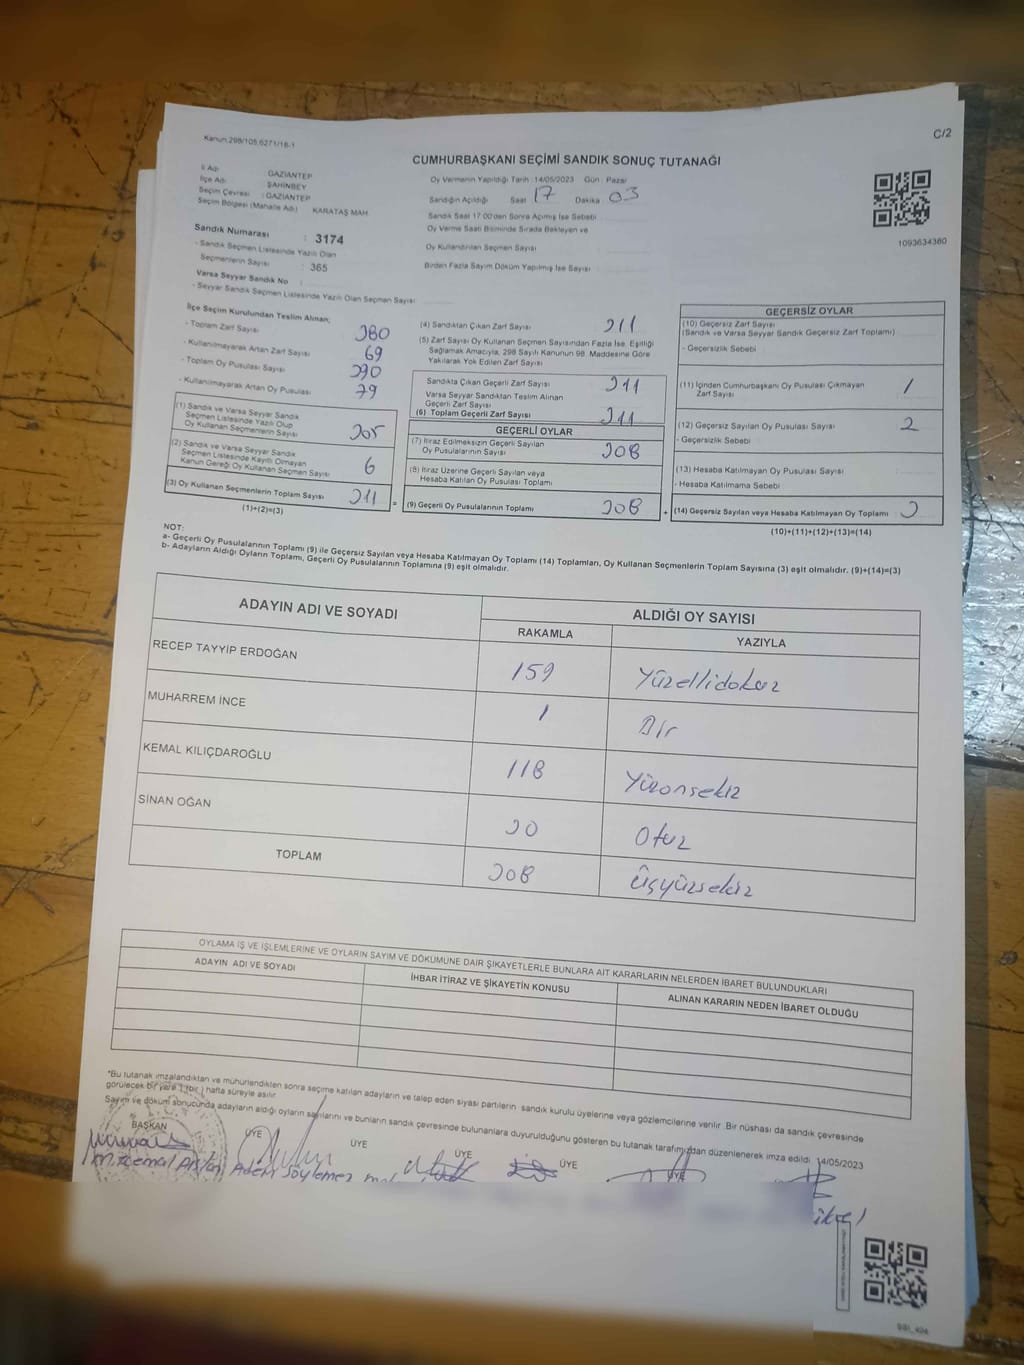 Kanun.298/105,6271/18-1
C/2
CUMHURBAŞKANI SEÇİMİ SANDIK SONUÇ TUTANAĞI
İl Adı GAZİANTEP
İlçe Adı ŞAHİNBEY
Seçim Çevresi : GAZİANTEP
Seçim Bölgesi (Mahalle Adı) KARATAŞ MAH
Oy Vermenin Yapıldığı Tarih :14/05/2023 Gün : Pazar
Sandığın Açıldığı Saat 17 Dakika 03
Sandık Saat 17:00'den Sonra Açılmış İse Sebebi
Oy Verme Saati Bitiminde Sırada Bekleyen ve
Oy Kullandırılan Seçmen Sayısı
Birden Fazla Sayım Döküm Yapılmış İse Sayısı
1093634360
Sandık Numarası : 3174
- Sandık Seçmen Listesinde Yazılı Olan
Seçmenlerin Sayısı : 365
Varsa Seyyar Sandık No :
- Seyyar Sandık Seçmen Listesinde Yazılı Olan Seçmen Sayısı
İlçe Seçim Kurulundan Teslim Alınan;
- Toplam Zarf Sayısı 380
- Kullanılmayarak Artan Zarf Sayısı 69
- Toplam Oy Pusulası Sayısı 390
- Kullanılmayarak Artan Oy Pusulası 79
(1) Sandık ve Varsa Seyyar Sandık
Seçmen Listesinde Yazılı Olup
Oy Kullanan Seçmenlerin Sayısı 305
(2) Sandık ve Varsa Seyyar Sandık
Seçmen Listesinde Kayıtlı Olmayan
Kanun Gereği Oy Kullanan Seçmen Sayısı 6
(3) Oy Kullanan Seçmenlerin Toplam Sayısı 311
(1)+(2)=(3)
(4) Sandıktan Çıkan Zarf Sayısı 311
(5) Zarf Sayısı Oy Kullanan Seçmen Sayısından Fazla İse, Eşitliği
Sağlamak Amacıyla, 298 Sayılı Kanunun 98. Maddesine Göre
Yakılarak Yok Edilen Zarf Sayısı
Sandıkta Çıkan Geçerli Zarf Sayısı 311
Varsa Seyyar Sandıktan Teslim Alınan
Geçerli Zarf Sayısı
(6) Toplam Geçerli Zarf Sayısı 311
GEÇERLİ OYLAR
(7) İtiraz Edilmeksizin Geçerli Sayılan
Oy Pusulalarının Sayısı 308
(8) İtiraz Üzerine Geçerli Sayılan veya
Hesaba Katılan Oy Pusulası Toplamı
= (9) Geçerli Oy Pusulalarının Toplamı 308
GEÇERSİZ OYLAR
(10) Geçersiz Zarf Sayısı
(Sandık ve Varsa Seyyar Sandık Geçersiz Zarf Toplamı)
- Geçersizlik Sebebi
(11) İçinden Cumhurbaşkanı Oy Pusulası Çıkmayan
Zarf Sayısı 1
(12) Geçersiz Sayılan Oy Pusulası Sayısı 2
- Geçersizlik Sebebi
(13) Hesaba Katılmayan Oy Pusulası Sayısı
- Hesaba Katılmama Sebebi
+ (14) Geçersiz Sayılan veya Hesaba Katılmayan Oy Toplamı : 3
(10)+(11)+(12)+(13)=(14)
NOT:
a- Geçerli Oy Pusulalarının Toplamı (9) ile Geçersiz Sayılan veya Hesaba Katılmayan Oy Toplamı (14) Toplamları, Oy Kullanan Seçmenlerin Toplam Sayısına (3) eşit olmalıdır. (9)+(14)=(3)
b- Adayların Aldığı Oyların Toplamı, Geçerli Oy Pusulalarının Toplamına (9) eşit olmalıdır.
ADAYIN ADI VE SOYADI
ALDIĞI OY SAYISI
RAKAMLA YAZIYLA
RECEP TAYYİP ERDOĞAN 159 Yüzellidokuz
MUHARREM İNCE 1 Bir
KEMAL KILIÇDAROĞLU 118 Yüzonsekiz
SİNAN OĞAN 30 Otuz
TOPLAM 308 Üçyüzsekiz
OYLAMA İŞ VE İŞLEMLERİNE VE OYLARIN SAYIM VE DÖKÜMÜNE DAİR ŞİKAYETLERLE BUNLARA AİT KARARLARIN NELERDEN İBARET BULUNDUKLARI
ADAYIN ADI VE SOYADI
İHBAR İTİRAZ VE ŞİKAYETİN KONUSU
ALINAN KARARIN NEDEN İBARET OLDUĞU
*Bu tutanak imzalandıktan ve mühürlendikten sonra seçime katılan adayların ve talep eden siyasi partilerin sandık kurulu üyelerine veya gözlemcilerine verilir .Bir nüshası da sandık çevresinde
görülecek bir yere 1 (bir ) hafta süreyle asılır.
Sayım ve döküm sonucunda adayların aldığı oyların sayılarını ve bunların sandık çevresinde bulunanlara duyurulduğunu gösteren bu tutanak tarafımızdan düzenlenerek imza edildi. 14/05/2023
BAŞKAN ÜYE ÜYE ÜYE ÜYE ÜYE
Arslan Adem Söylemez